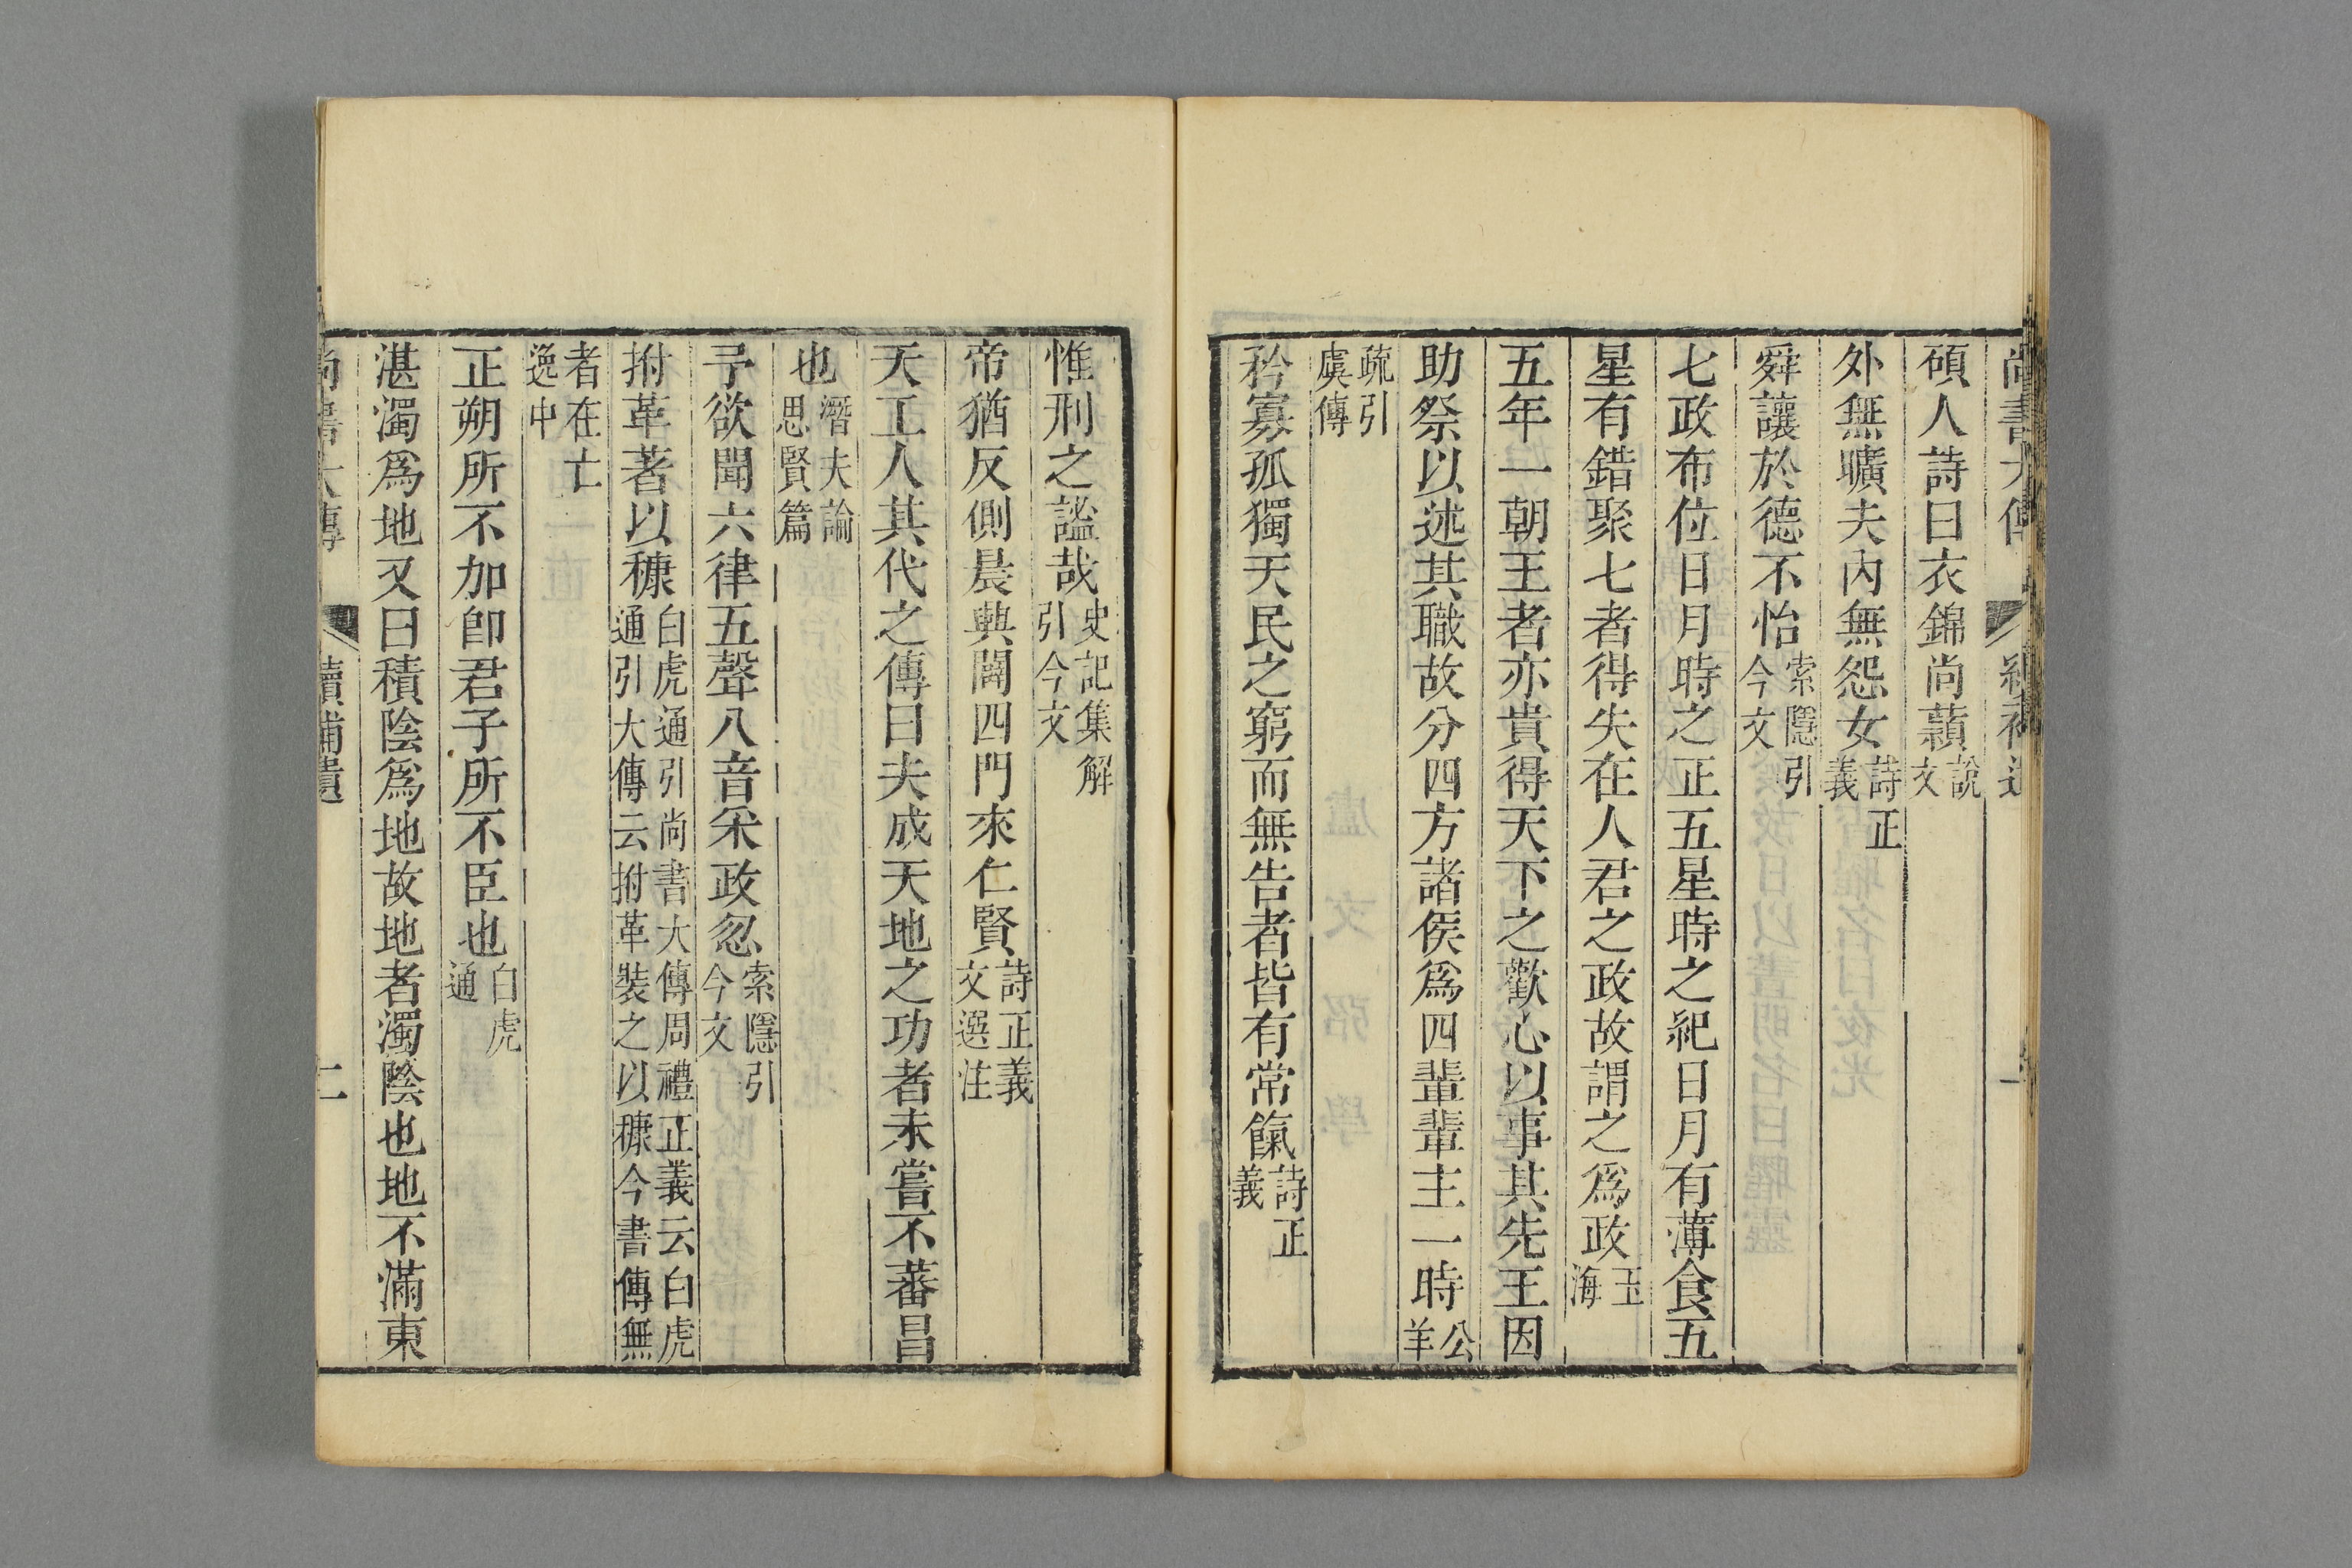 碩人詩曰衣錦尚蘔說文
外無曠夫內無怨女詩正義
舜讓於德不怡索隱引今文
七政布位日月時之正五星時之紀日月有薄食五
星有錯聚七者得失在人君之政故謂之爲政玉海
五年一朝王者亦貴得天下之歡心以事其先王因
助祭以述其職故分四方諸侯爲四輩輩主一時公羊
疏引虞傳
矜寡孤獨天民之窮而無告者皆有常餼詩正義
惟刑之謐哉史記集解引今文
帝猶反側晨興闢四門來仁賢詩正義文選注
天工人其代之傳曰夫成天地之功者未嘗不蕃昌
也潛夫論思賢篇
予欲聞六律五聲八音采政忽索隱引今文
拊革著以穅白虎通引尚書大傳周禮正義云白虎通引大傳云拊革裝之以穅今書傳無
者在亡逸中
正朔所不加卽君子所不臣也白虎通
湛濁爲地又曰積陰爲地故地者濁陰也地不滿東
尚書大傳 續補遺 二